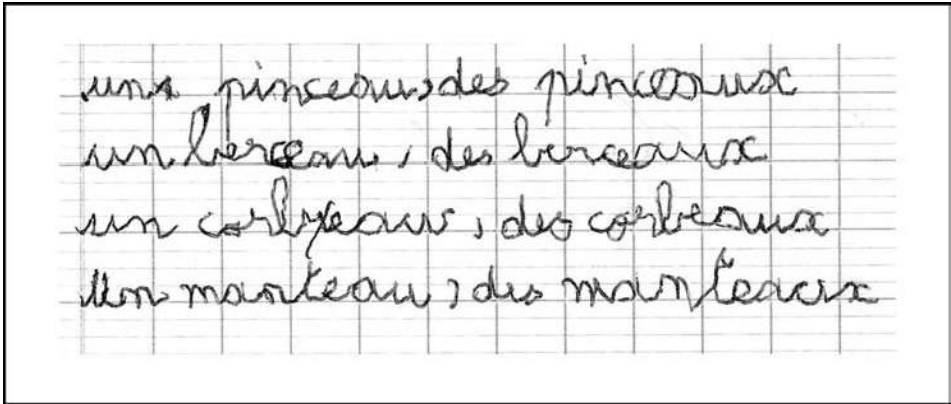 un pinceau, des pinceaux
un berceau, des berceaux
un corbeau, des corbeaux
un manteau, des manteaux